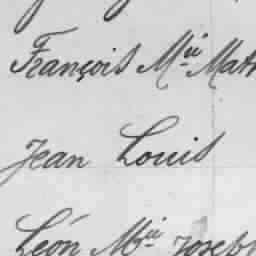 François Mii Math
Jean Louis
Léon Mii Joseph